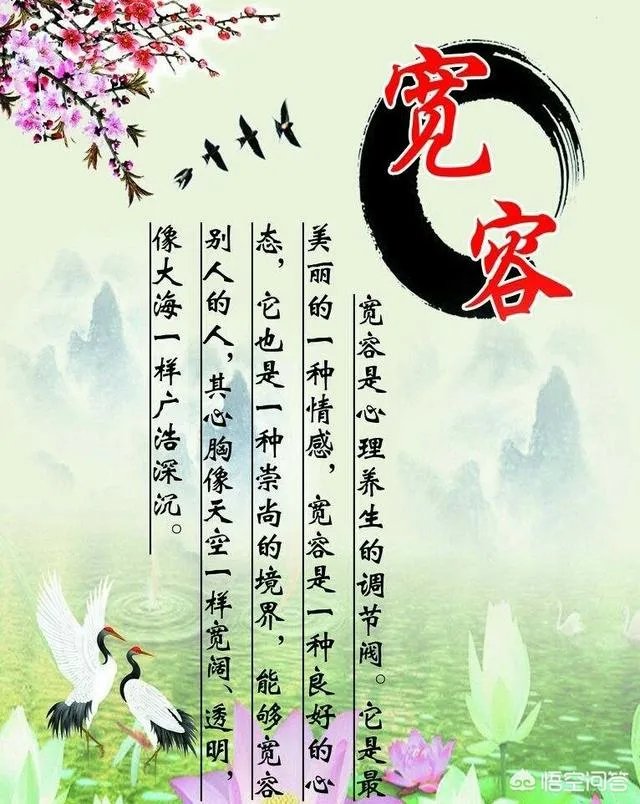 宽容
宽容是心理养生的调节阀。它是最
美丽的一种情感，宽容是一种良好的心
态，它也是一种崇尚的境界，能够宽容
别人的人，其心胸像天空一样宽阔、透明，
像大海一样广浩深沉。
悟空问答